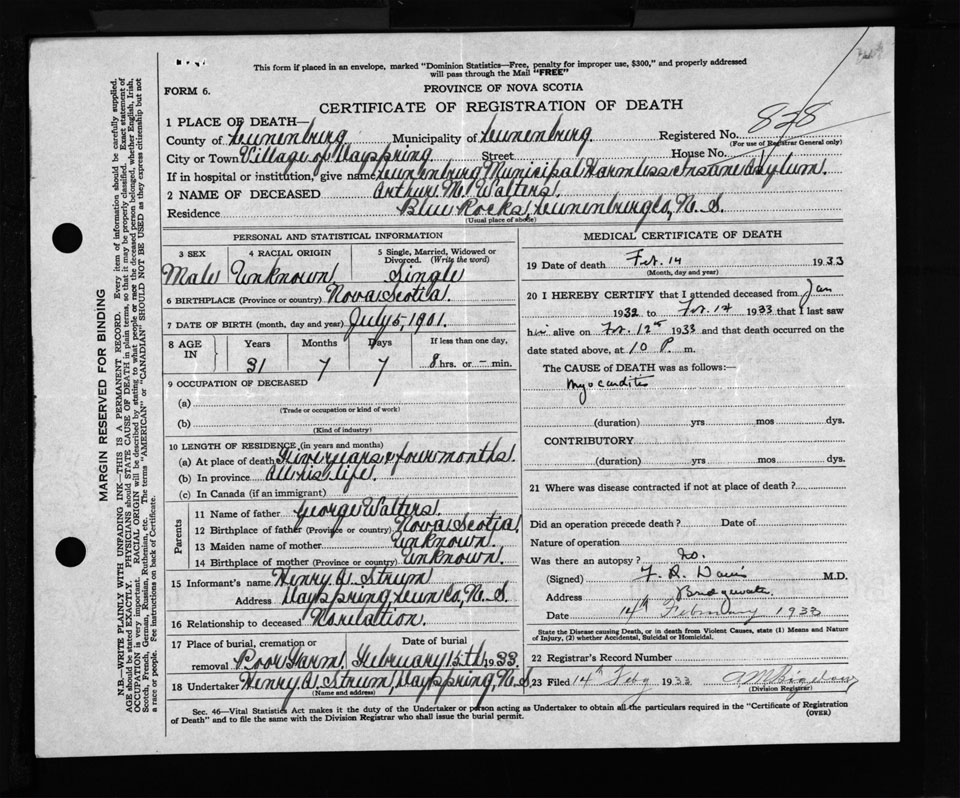 This form if placed in an envelope, marked "Dominion Statistics—Free, penalty for improper use, $300," and properly addressed
will pass through the Mail "FREE"
FORM 6.
PROVINCE OF NOVA SCOTIA
CERTIFICATE OF REGISTRATION OF DEATH
1 PLACE OF DEATH—
County of Lunenburg Municipality of Lunenburg Registered No. 828
(For use of Registrar General only)
City or Town Village of Dayspring Street House No.
If in hospital or institution, give name Lunenburg Municipal Harmless Insane Asylum.
2 NAME OF DECEASED Arthur M. Walters.
Residence Blue Rocks, Lunenburg Co, N. S.
(Usual place of abode)
PERSONAL AND STATISTICAL INFORMATION
3 SEX 4 RACIAL ORIGIN 5 Single, Married, Widowed or Divorced. (Write the word)
Male Unknown Single
6 BIRTHPLACE (Province or country) Nova Scotia.
7 DATE OF BIRTH (month, day and year) July 5, 1901.
8 AGE IN Years Months Days If less than one day,
31 7 7 8 hrs. or – min.
9 OCCUPATION OF DECEASED
(a)
(Trade or occupation or kind of work)
(b)
(Kind of industry)
10 LENGTH OF RESIDENCE (in years and months)
(a) At place of death years & four months.
(b) In province All his life.
(c) In Canada (if an immigrant)
Parents
11 Name of father George Walters.
12 Birthplace of father (Province or country) Nova Scotia
13 Maiden name of mother Unknown.
14 Birthplace of mother (Province or country) Unknown.
15 Informant's name Henry A. Strum
Address Dayspring, Lun Co, N. S.
16 Relationship to deceased No relation.
17 Place of burial, cremation or removal Poor Farm. Date of burial February 15th 1933.
18 Undertaker Henry A. Strum, Dayspring, N. S.
(Name and address)
MEDICAL CERTIFICATE OF DEATH
19 Date of death Feb. 14 1933
(Month, day and year)
20 I HEREBY CERTIFY that I attended deceased from Jan
1932 to Feb. 14 1933 that I last saw
him alive on Feb. 12th 1933 and that death occurred on the
date stated above, at 10 P. m.
The CAUSE of DEATH was as follows:—
Myocarditis
(duration) yrs mos dys.
CONTRIBUTORY
(duration) yrs mos dys.
21 Where was disease contracted if not at place of death?
Did an operation precede death? Date of
Nature of operation
Was there an autopsy? No.
(Signed) F. R. Davis M.D.
Address Bridgewater
Date 14th February 1933
State the Disease causing Death, or in death from Violent Causes, state (1) Means and Nature of Injury, (2) whether Accidental, Suicidal or Homicidal.
22 Registrar's Record Number
23 Filed 14th Feby 1933
(Division Registrar)
Sec. 46—Vital Statistics Act makes it the duty of the Undertaker or person acting as Undertaker to obtain all the particulars required in the "Certificate of Registration
of Death" and to file the same with the Division Registrar who shall issue the burial permit.
(OVER)
MARGIN RESERVED FOR BINDING
N.B.—WRITE PLAINLY WITH UNFADING INK—THIS IS A PERMANENT RECORD. Every item of information should be carefully supplied.
AGE should be stated EXACTLY. PHYSICIANS should STATE CAUSE OF DEATH in plain terms, so that it may be properly classified. Exact statement of
OCCUPATION is very important. RACIAL ORIGIN will be described by stating to what people or race the deceased person belonged, whether English, Irish,
Scotch, French, German, Russian, Ruthenian, etc. The terms "AMERICAN" or "CANADIAN" SHOULD NOT BE USED as they express citizenship but not
a race or people. See instructions on back of Certificate.